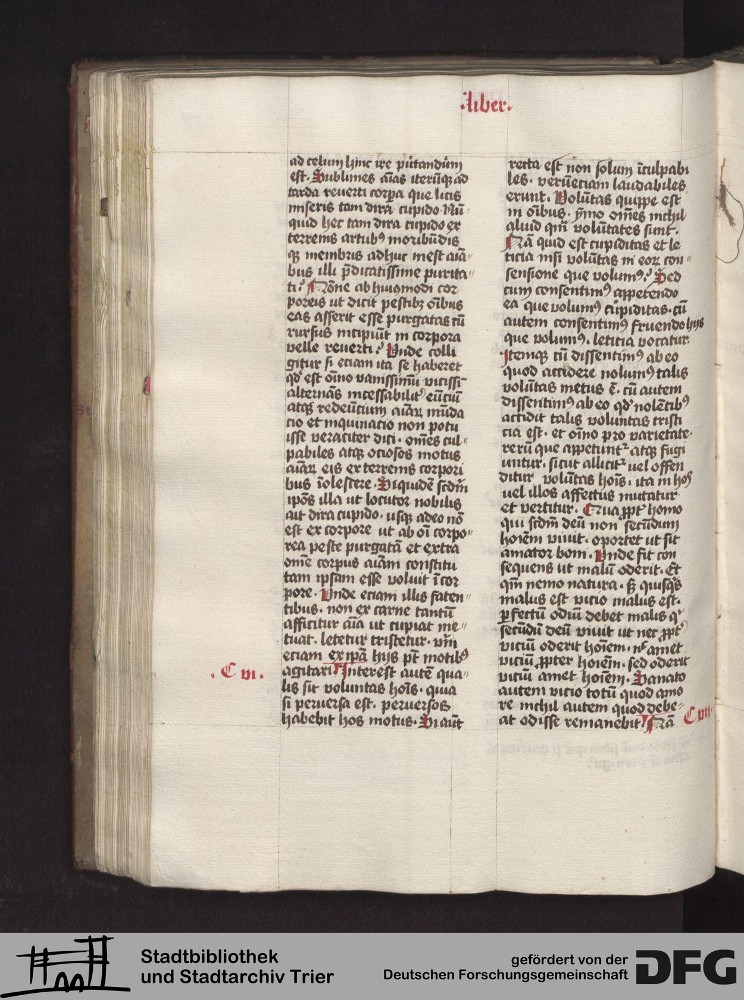 ·liber·
ad celum hinc ire putandūm
est. Sublimes aīas iterūqꝫ ad
tarda reuerti corpa que lucis
miseris tam dira cupido. Nū-
quid hec tam dira cupido ex
terrenis artubꝰ moribūdis
qꝫ membris adhuc inest aīa-
bus illi p̄dicatissime purita-
ti? None ab huiꝰmodi cor
poreis ut dicit pestibꝫ oībus
eas asserit esse purgatas cū
rursus incipiūt in corpora
velle reuerti? Unde colli
gitur si eciam ita se haberet
qd̕ est oīno vanissimū vicissī
alternās incessabilitˀ eūciū
atqꝫ redeūcium aīaꝝ mūda
cio et inquinacio non potu
isse veraciter dici. omēs cul-
pabiles atqꝫ ociosos motus
aīaꝝ eis ex terrenis corpori
bus īolescere. Siquidē scdm̄
ip̄os illa ut locutor nobilis
ait dira cupido. usqꝫ adeo nō
est ex corpore ut ab oī corpo-
rea peste purgatā et extra
om̄e corpus aīam constitu
tam ipsam esse voluit ī cor
pore. Unde eciam illis faten-
tibus. non ex carne tantū
afficitur aīa ut cupiat me-
tuat. letetur tristetur. vm̄
eciam ex ip̄a hijs pt̄ motibꝰ
agitari. Interest autē qua-
·C vi·
lis sit voluntas hoīs. quia
si peruersa est. peruersos
habebit hos motus. Si aūt
recta est non solum īculpabi
les. verūeciam laudabiles
erunt. Voluntas quippe est
in oībus. ymo omēs nichil
aliud qm̄ volūtates sunt.
Nā quid est cupiditas et le
ticia nisi volūtas in eoꝝ con-
sensione que volumꝰ? Sed
cum consentimꝰ appetendo
ea que volumꝰ cupiditas. cū
autem consentimꝰ fruendo hijs
que volumꝰ. leticia vocatur.
Itemqꝫ cū dissentimꝰ ab eo
quod accidere nolumꝰ talis
volūtas metus ē. cū autem
dissentimꝰ ab eo qd̕ nolētibꝰ
accidit talis voluntas tristi
cia est. et oīno pro varietate
rerū que appetuntˀ atqꝫ fugi
untur. sicut allicitˀ uel offen
ditur voluntas hoīs. ita in hos
uel illos affectus mutatur
et vertitur. Qua ꝓptˀ homo
qui scdm̄ deū non secundum
hoīem viuit. oportet ut sit
amator boni. Unde fit con
sequens ut malū oderit. Et
qm̄ nemo natura. sꝫ quisqˢ
malus est vicio malus est.
ꝑfectū odiū debet malis qˢ
secūdū deū viuit ut nec ꝓptˀ
viciū oderit hoīem. nˀ amet
viciū ꝓpter hoīem. sed oderit
viciū amet hoīem. Sanato
autem vicio totū quod amo
re nichil autem quod debe-
at odisse remanebit. Nā
C vii·
Stadtbibliothek
und Stadtarchiv Trier
gefördert von der
Deutschen Forschungsgemeinschaft
DFG